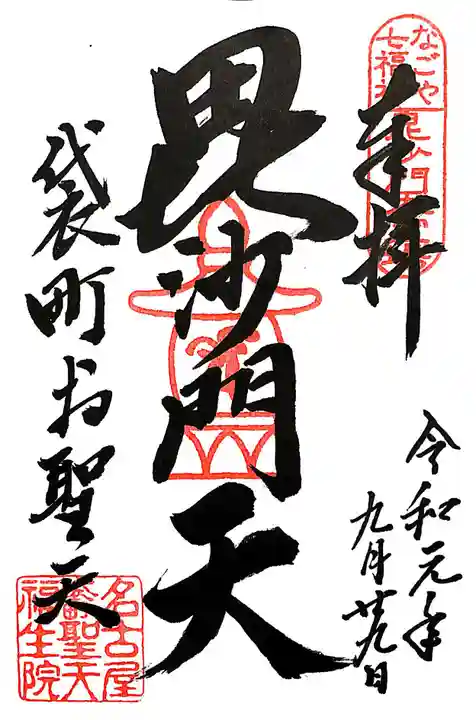 なごや
七福神
毘沙門天
奉拝
令和元年
九月廿九日
毘沙門天
袋町お聖天
名古屋
聖天
福生院